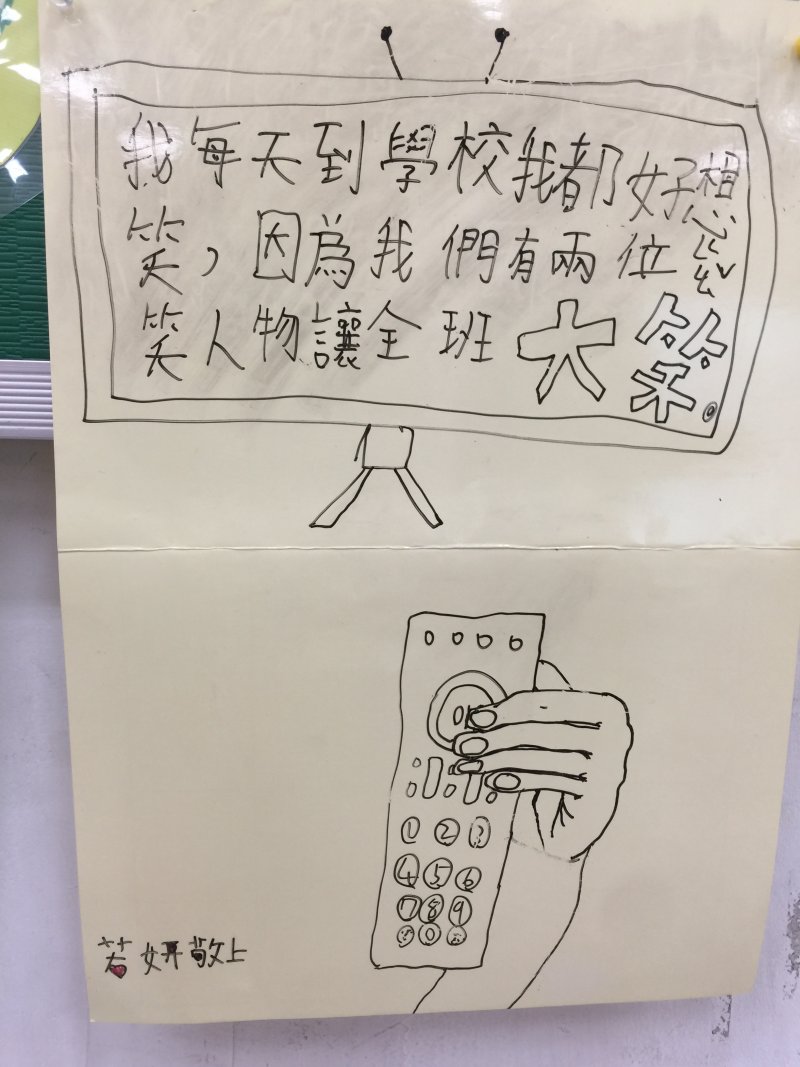 我每天到學校我都好想
笑，因為我們有兩位ㄍㄠˇ
笑人物讓全班大笑。
OK
1 2 3
4 5 6
7 8 9
0
若妍敬上